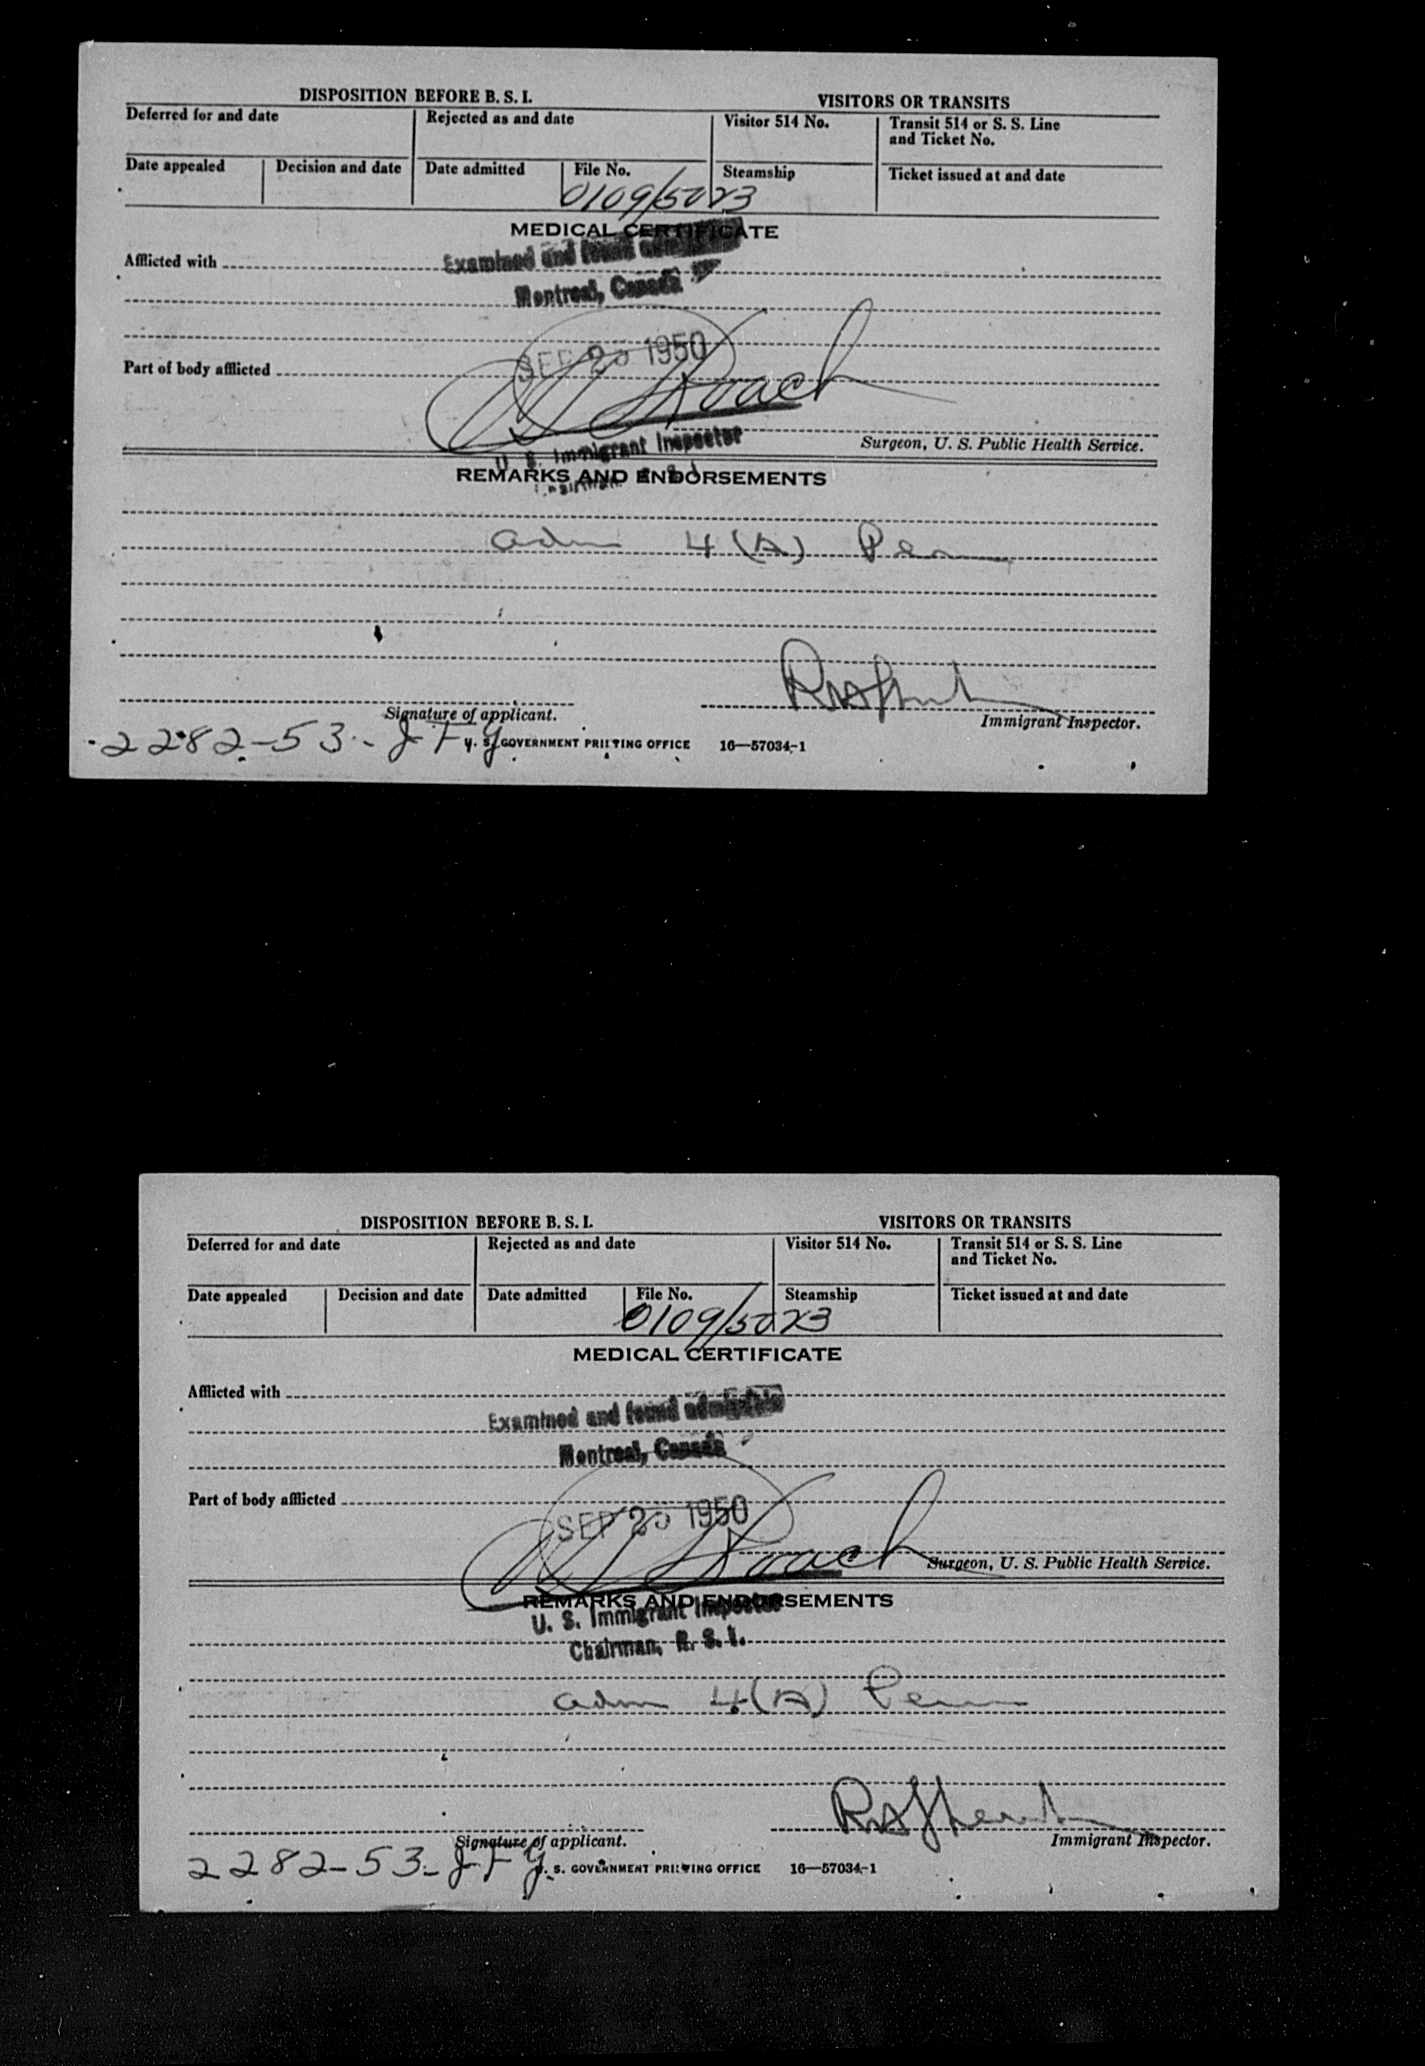 DISPOSITION BEFORE B. S. I.
VISITORS OR TRANSITS
Deferred for and date
Rejected as and date
Visitor 514 No.
Transit 514 or S. S. Line
and Ticket No.
Date appealed
Decision and date
Date admitted
File No.
Steamship
Ticket issued at and date
0109/5023
MEDICAL CERTIFICATE
Afflicted with
Examined and found
Montreal, Canada
SEP 1950
Part of body afflicted
Roach
Surgeon, U. S. Public Health Service.
U. S. Immigrant Inspector
REMARKS AND ENDORSEMENTS
adm 4(A) Perm
Signature of applicant.
Immigrant Inspector.
2282-53-JFY
U. S. GOVERNMENT PRINTING OFFICE 16—57034-1
DISPOSITION BEFORE B. S. I.
VISITORS OR TRANSITS
Deferred for and date
Rejected as and date
Visitor 514 No.
Transit 514 or S. S. Line
and Ticket No.
Date appealed
Decision and date
Date admitted
File No.
Steamship
Ticket issued at and date
0109/5023
MEDICAL CERTIFICATE
Afflicted with
Examined and found admissible
Montreal, Canada
Part of body afflicted
SEP 1950
Roach
Surgeon, U. S. Public Health Service.
REMARKS AND ENDORSEMENTS
U. S. Immigrant Inspector
Chairman, B. S. I.
adm 4(A) Perm
Signature of applicant.
Immigrant Inspector.
2282-53-JFY
U. S. GOVERNMENT PRINTING OFFICE 16—57034-1